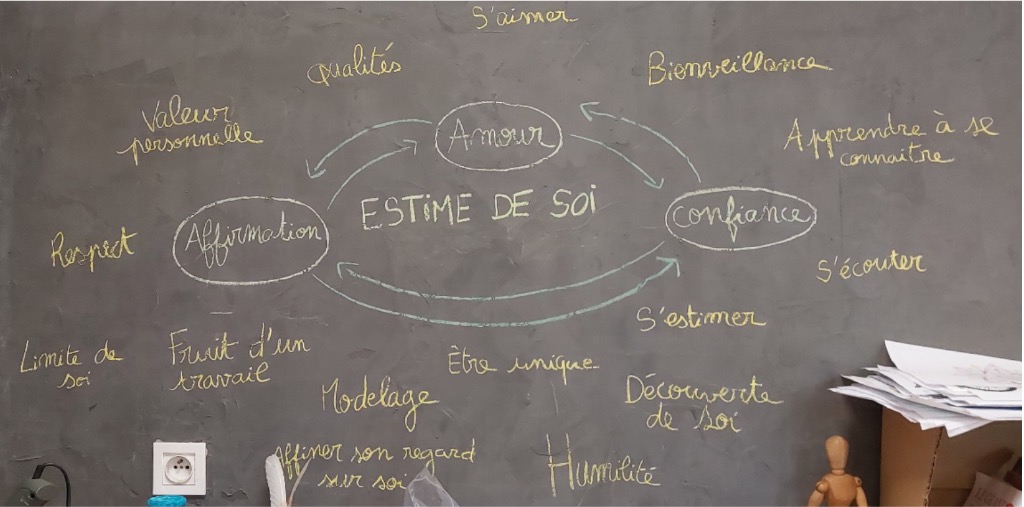 S'aimer
Qualités
Bienveillance
Valeur
personnelle
Amour
Apprendre à se
connaitre
ESTIME DE SOI
Affirmation
Confiance
Respect
S'écouter
S'estimer
Limite de
soi
Fruit d'un
travail
Être unique
Modelage
Découverte
de soi
affiner son regard
sur soi
Humilité